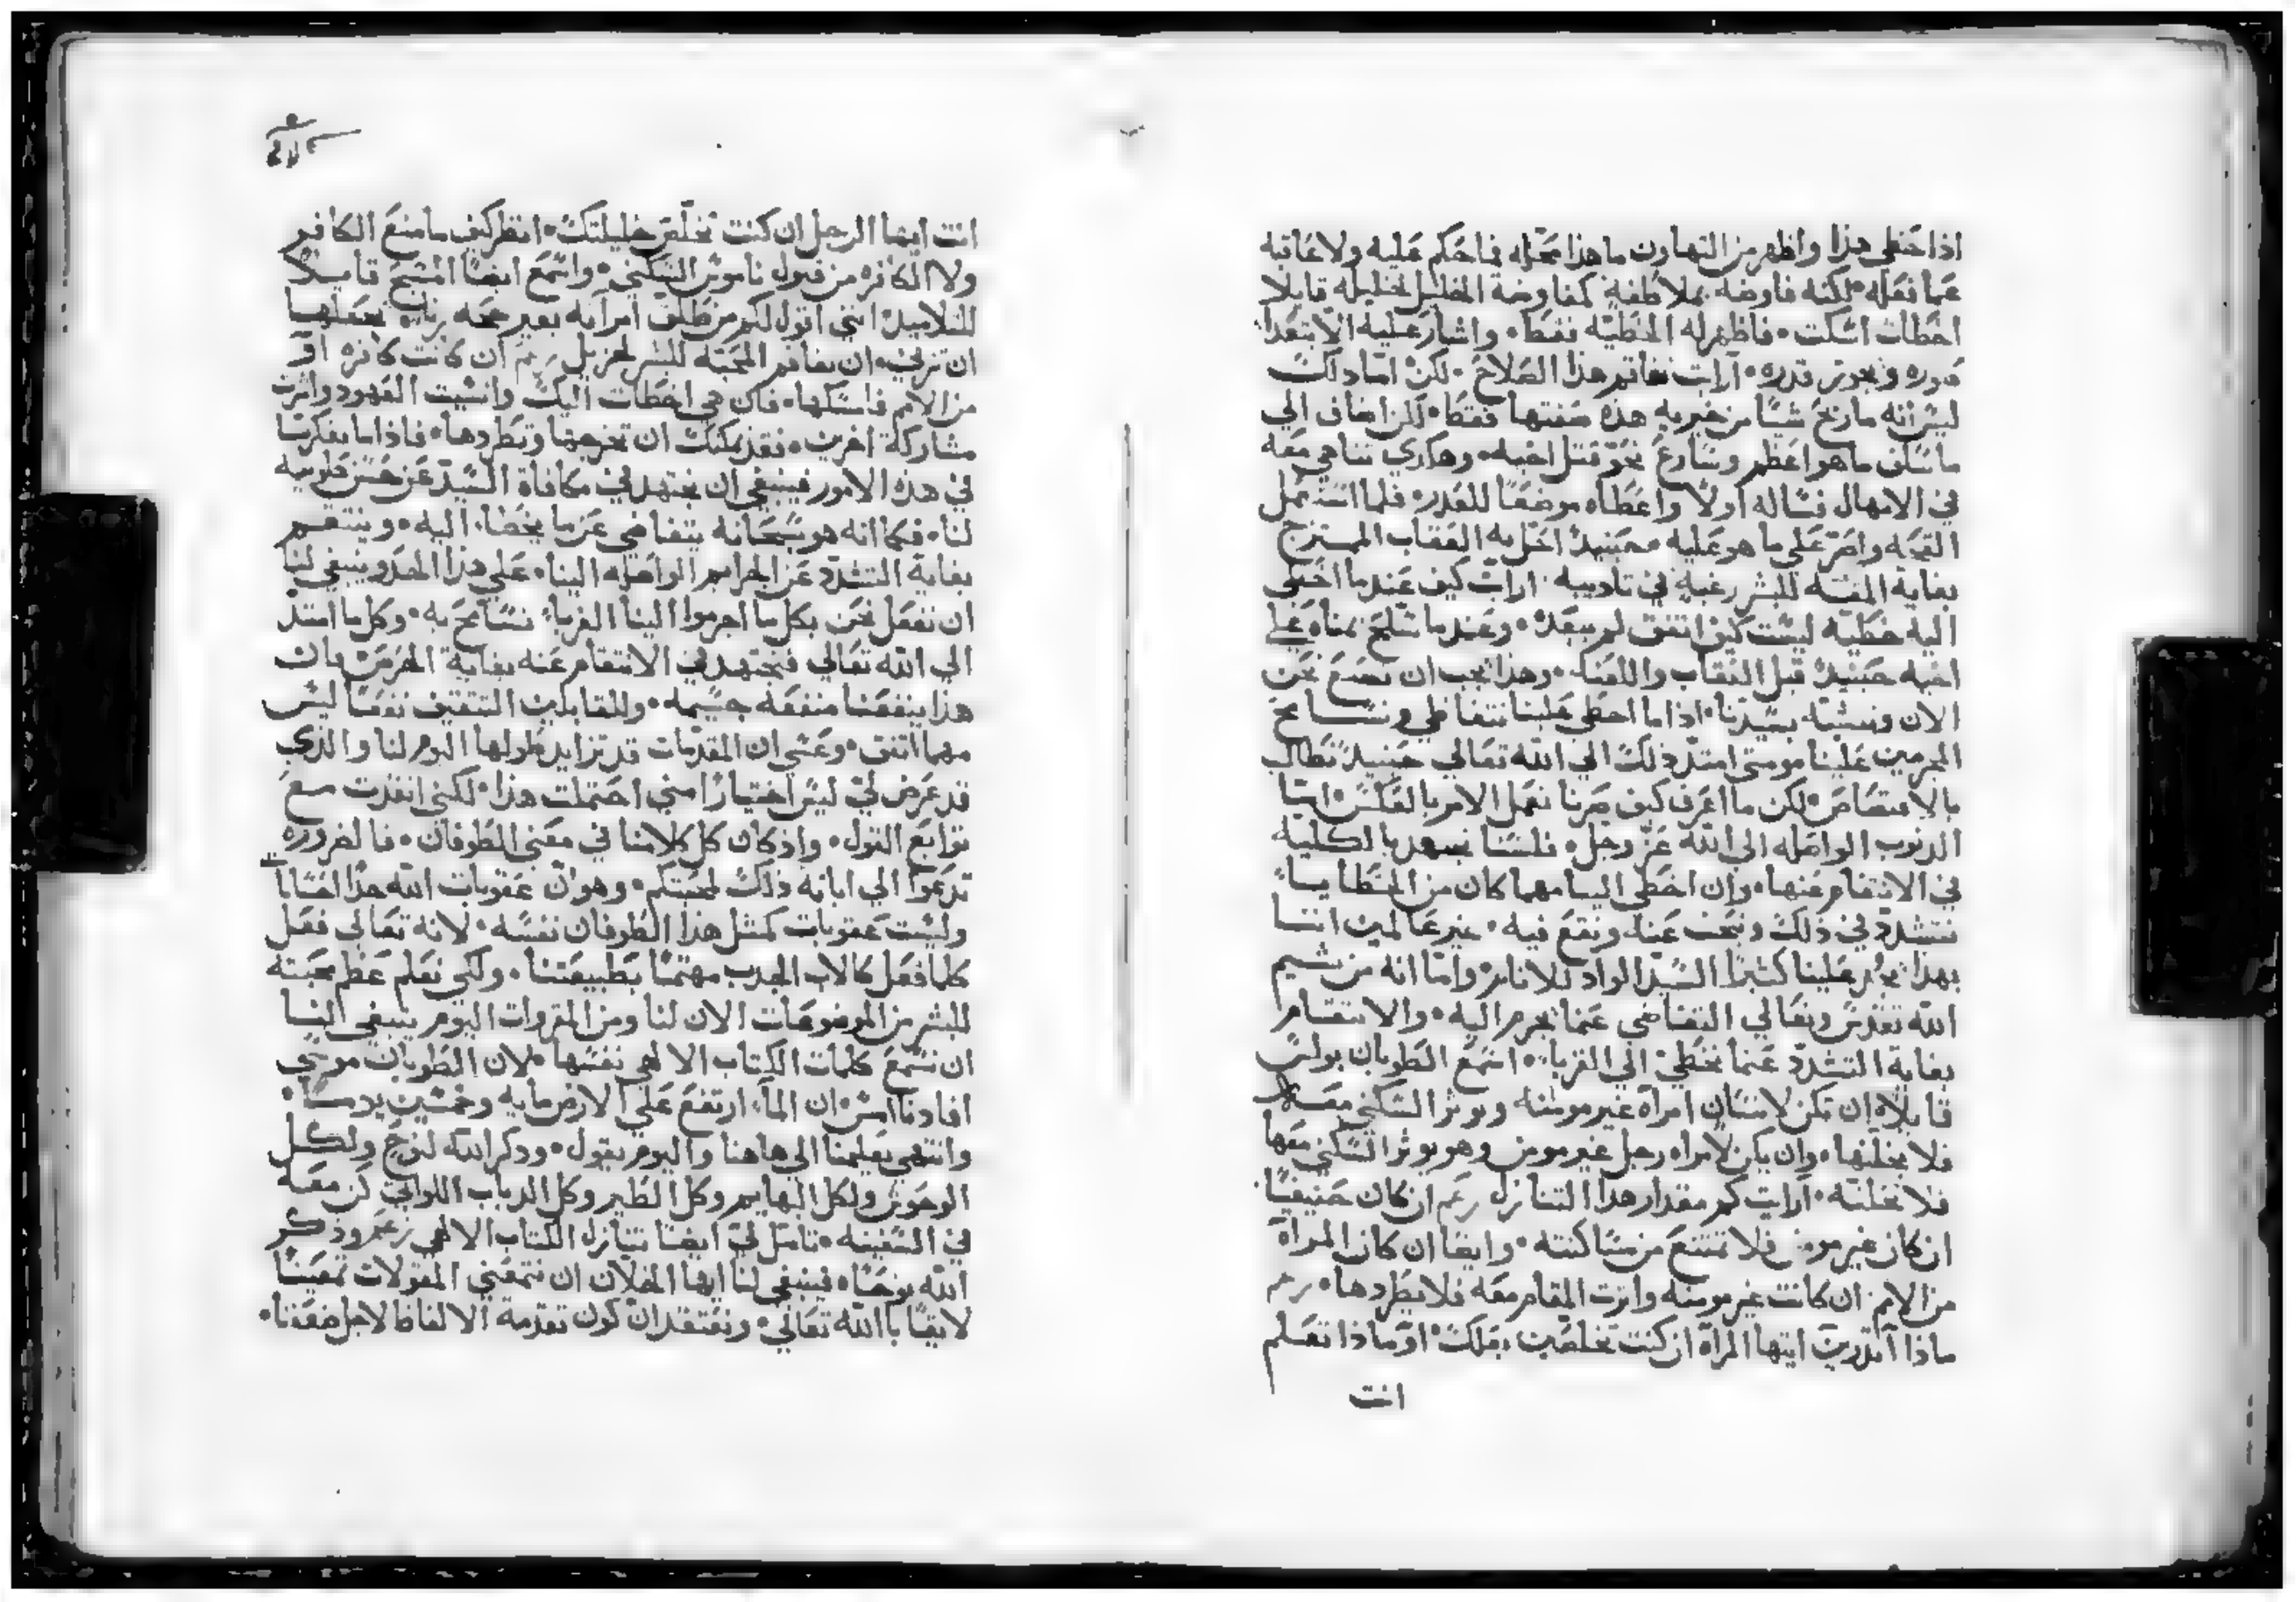 اذا اخطى هذا واظهر من التهاون ما هذا محله فما حكم عليه ولا عاقبه
عما فعله لكنه فاوضه بملاطفةٍ كمفاوضة الخليل لخليله قايلا
اخطات اسكت فاظهر له الخطيه فقط واشار عليه الا يتعدا
قدره ارايت تفاقم هذا الصلاح لكن اما ذلك
ليس انه ما ربح شيًا من خيريه هذه صفتها فقط لكن اضاف الي
ما سلف ما هو اعظم وسارع نحو قتل اخيه وهكدي تناهي معه
في الامهال فساله اولًا واعطاه موضعًا للعدر فلما استعمل
القحه واصر علي ما هو عليه فحينيدٍ احل به العقاب الممتزج
بغاية المقه للبشر رغبةٍ في تاديبه ارايت كيف عندما اخطى
اليه خطيه ليست كيف اتفق لم يبعد وعندما سلح يمناه علي
اخيه حينيدٍ قبل العقاب واللعنه وهذا يجب ان نصنع نحن
الان ونتشبه بسيدنا اذا ما اخطى علينا نتغاضي ونسامح
المجرمين علينا ومتى امتد ذلك الي الله تعالي حينيدٍ نطالب
بالاقتصاص لكن ما اعرف كيف صرنا نعمل الامر بالعكس اما
الدنوب الواصله الي الله عز وجل فلسنا نجتهد بالكليه
في الانتقام عنها وان اخطى الينا مهما كان من الخطايا
نتشدد في ذلك ونبحث عنه ونقع فيه غير عالمين اننا
بهدا نحرد علينا كثيرًا السيد الواد للانام واما انه من شيم
الله تقدس وتعالي التغاضي عنما يجرم اليه والانتقام
بغاية التشدد عنما يخطى الي القربا استمع الطوبان بولس
قايلًا ان تكن لانسان امرآه غير مومنه وتوثر السكني معه
فلا يخلنها وان يكن لامراه رجل غير مومن وهو يوثر السكني معها
فلا تخلنه ارايت كم مقدار هذا التنازل زعم ان كان حنيفيًا
ان كان غير مومن فلا تمتنع من مساكنته وايضا ان كان المراه
من الامم ان كانت غير مومنه واثرت المقام معه فلا يطردها زعم
ماذا اتدرين ايتها المراه ان كنت تخلصين بعلك او ماذا تعلم
انت
انت ايها الرجل ان كنت تخلص خليلتك انظر كيف ما منع الكافر
ولا الكافره من قبول ناموس السكني واسمع ايضًا المسيح قايلًا
للتلاميد انني اقول لكم من طلق امرآته بغير حجه زناء يجعلها
ان تزني ان تفاقم المحبه للبشر لجزيل زعم ان كانت كافره او
من الامم فامسكها فان هي اخطات اليك وانسيت العهود واثرت
مشاركة اخرين فقد يمكنك ان تخرجها وتطردها فاذا ما تفكرنا
في هذه الامور فينبغي ان نجتهد في مكافاة السيد عن حسن خلوصه
لنا فكما انه هو سبحانه يتغاضي عن ما يخطا اليه وينتقم
بغاية التشدد عن الجرايم الواصله الينا علي هذا الحدو ينبغي لنا
ان نفعل نحن بكل ما اجرموا الينا القربا نسامح به وكل ما امتد
الي الله تعالي فنجتهد في الانتقام عنه بغاية الحرص بان
هذا ينفعنا منفعه جسيمه وللقابلين التثقيف نفعًا ليس
مهما اتفق وعسي ان المقدمات قد تزايد طولها اليوم لنا والذي
قد عرض لي ليس اختيارًا مني احتملت هذا لكني انقدت مع
توابع القول واذ كان كل كلامنا في معني الطوفان فالضروره
تدعوا الي ابانة ذلك لمحبتكم وهو ان عقوبات الله هذا احسانًا
وليست عقوبات كمثل هذا الطوفان نفسه لانه تعالي فعل
كلما فعل كالاب المحدب مهتمًا بطبيعتنا ولكي نعلم عظم محبته
للبشر من الموضوعات الان لنا ومن المقروات اليوم ينبغي الينا
ان نستمع كلمات الكتاب الالهي نفسها لان الطوبان موسي
افادنا امس ان الماء ارتفع علي الارض مايه وخمسين يومًا
وانتهي تعليمنا الي هاهنا واليوم يقول ودكر الله لنوح ولكل
الوحوش ولكل البهايم وكل الطير وكل الدباب اللواتي كن معه
في السفينه تامل لي ايضًا تنازل الكتاب الالهي زعم وذكر
الله نوحًا فينبغي لنا ايها الخلان ان نتمعني المقولات تمعينًا
لايقًا بالله تعالي ونعتقد ان كون تقدمة الالفاظ لاجل ضعفنا